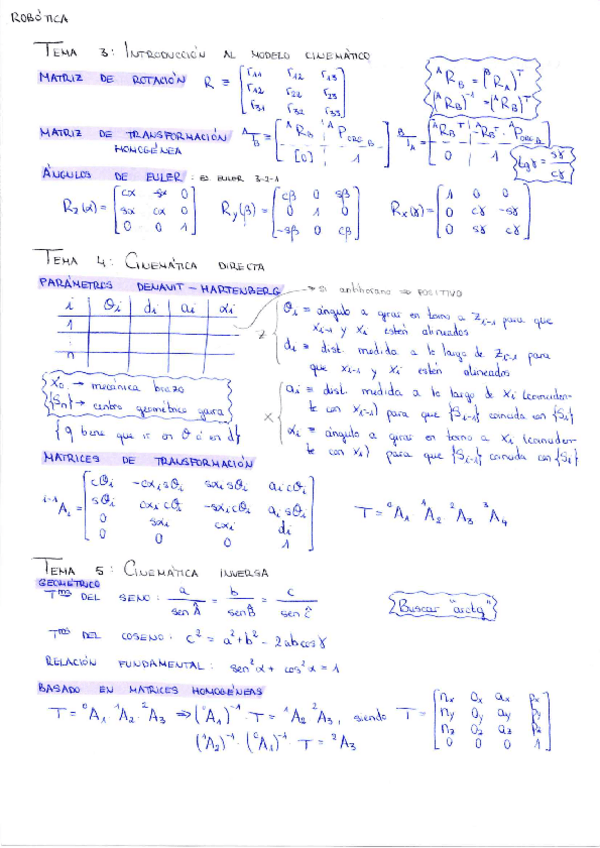 ROBÓTICA
TEMA 3: INTRODUCCIÓN AL MODELO CINEMÁTICO
MATRIZ DE ROTACIÓN R ≡ [r11 r12 r13
r12 r22 r23
r31 r32 r33]
ᴬR_B = (ᴮR_A)ᵀ
(ᴬR_B)⁻¹ = (ᴬR_B)ᵀ
MATRIZ DE TRANSFORMACIÓN HOMOGÉNEA ᴬT_B = [ᴬR_B ᴬP_ORG B
[0] 1]
ᴮT_A = [ᴬR_Bᵀ ᴬR_Bᵀ·ᴬP_ORG B
0 1]
tg γ = sγ / cγ
ÁNGULOS DE EULER: EJ EULER 3-2-1
Rz(α) = [cα -sα 0
sα cα 0
0 0 1]
Ry(β) = [cβ 0 sβ
0 1 0
-sβ 0 cβ]
Rx(γ) = [1 0 0
0 cγ -sγ
0 sγ cγ]
TEMA 4: CINEMÁTICA DIRECTA
PARÁMETROS DENAVIT-HARTENBERG
si antihorario → POSITIVO
i θi di ai αi
1
:
n
z { θi ≡ ángulo a girar en torno a z_i-1 para que
x_i-1 y xi estén alineados
di ≡ dist. medida a lo largo de z_i-1 para
que x_i-1 y xi estén alineados
x0 → mecánica brazo
{Sn} → centro geométrico garra
{q tiene que ir en θ ó en d}
x { ai ≡ dist. medida a lo largo de xi (coinciden-
te con x_i-1) para que {S_i-1} coincida con {Si}
αi ≡ ángulo a girar en torno a xi (coinciden-
te con xi) para que {S_i-1} coincida con {Si}
MATRICES DE TRANSFORMACIÓN
ⁱ⁻¹Ai = [cθi -cαi sθi sαi sθi ai cθi
sθi cαi cθi -sαi cθi ai sθi
0 sαi cαi di
0 0 0 1]
T = ⁰A1 ¹A2 ²A3 ³A4
TEMA 5: CINEMÁTICA INVERSA
GEOMÉTRICO
Tᵐᵃ DEL SENO: a / sen Â = b / sen B̂ = c / sen Ĉ
Buscar "arctg"
Tᵐᵃ DEL COSENO: c² = a² + b² - 2ab cos γ
RELACIÓN FUNDAMENTAL: sen²α + cos²α = 1
BASADO EN MATRICES HOMOGÉNEAS
T = ⁰A1 · ¹A2 · ²A3 ⇒ (⁰A1)⁻¹ · T = ¹A2 ²A3, siendo T = [nx ox ax px
ny oy ay py
nz oz az pz
0 0 0 1]
(¹A2)⁻¹ · (⁰A1)⁻¹ T = ²A3